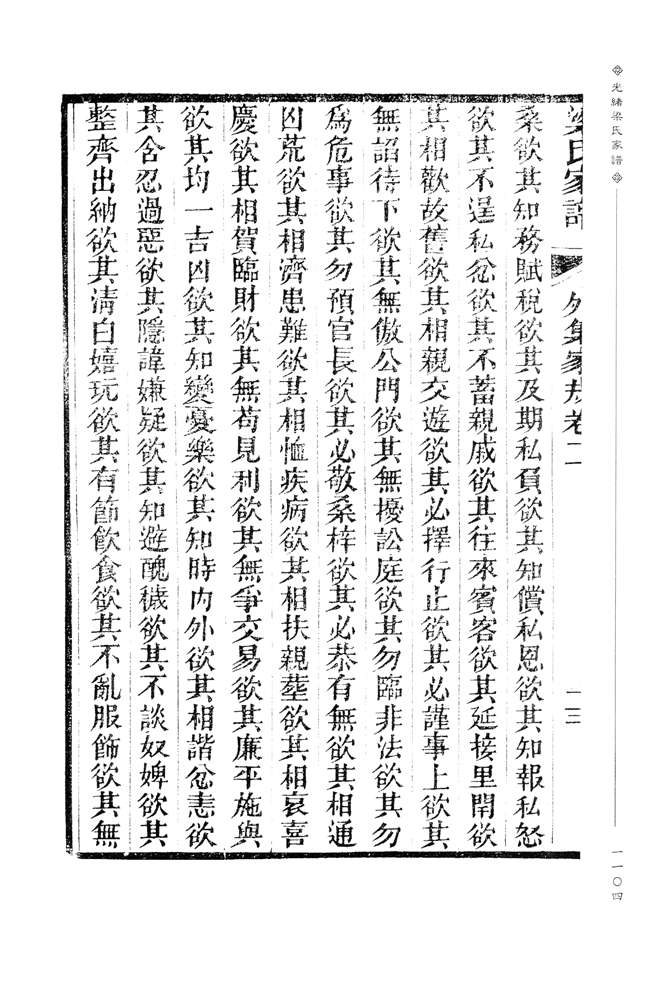 光緒梁氏家譜
一一〇四
梁氏家譜
外集家規卷二
二三
桑欲其知務賦稅欲其及期私負欲其知償私恩欲其知報私怒
欲其不逞私忿欲其不蓄親戚欲其往來賓客欲其延接里閈欲
其相歡故舊欲其相親交遊欲其必擇行止欲其必謹事上欲其
無諂待下欲其無傲公門欲其無擾訟庭欲其勿臨非法欲其勿
為危事欲其勿預官長欲其必敬桑梓欲其必恭有無欲其相通
凶荒欲其相濟患難欲其相恤疾病欲其相扶親塟欲其相哀喜
慶欲其相賀臨財欲其無苟見利欲其無爭交易欲其廉平施與
欲其均一吉凶欲其知變憂樂欲其知時內外欲其相諧忿恚欲
其含忍過惡欲其隱諱嫌疑欲其知避醜穢欲其不談奴婢欲其
整齊出納欲其清白嬉玩欲其有節飲食欲其不亂服飾欲其無